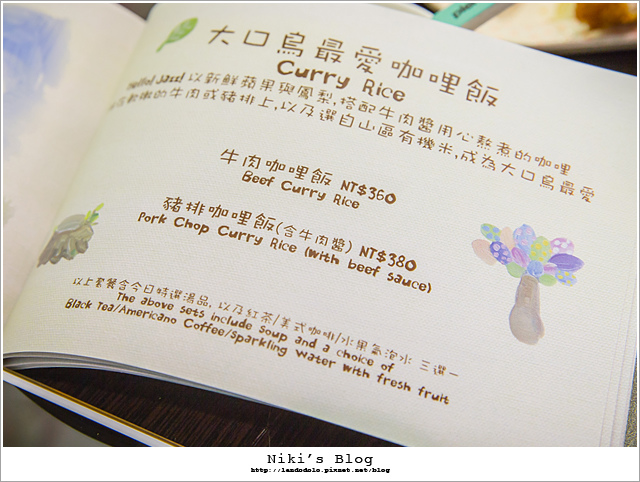 大口鳥最愛咖哩飯
Curry Rice
Hello! Jazz! 以新鮮蘋果與鳳梨,搭配牛肉醬用心熬煮的咖哩
軟嫩的牛肉或豬排上,以及選自山區有機米,成為大口鳥最愛
牛肉咖哩飯 NT$360
Beef Curry Rice
豬排咖哩飯(含牛肉醬) NT$380
Pork Chop Curry Rice (with beef sauce)
以上套餐含今日特選湯品, 以及紅茶/美式咖啡/水果氣泡水 三選一
The above sets include Soup and a choice of
Black Tea/Americano Coffee/Sparkling Water with fresh fruit
Niki's Blog
http://landodolo.pixnet.net/blog